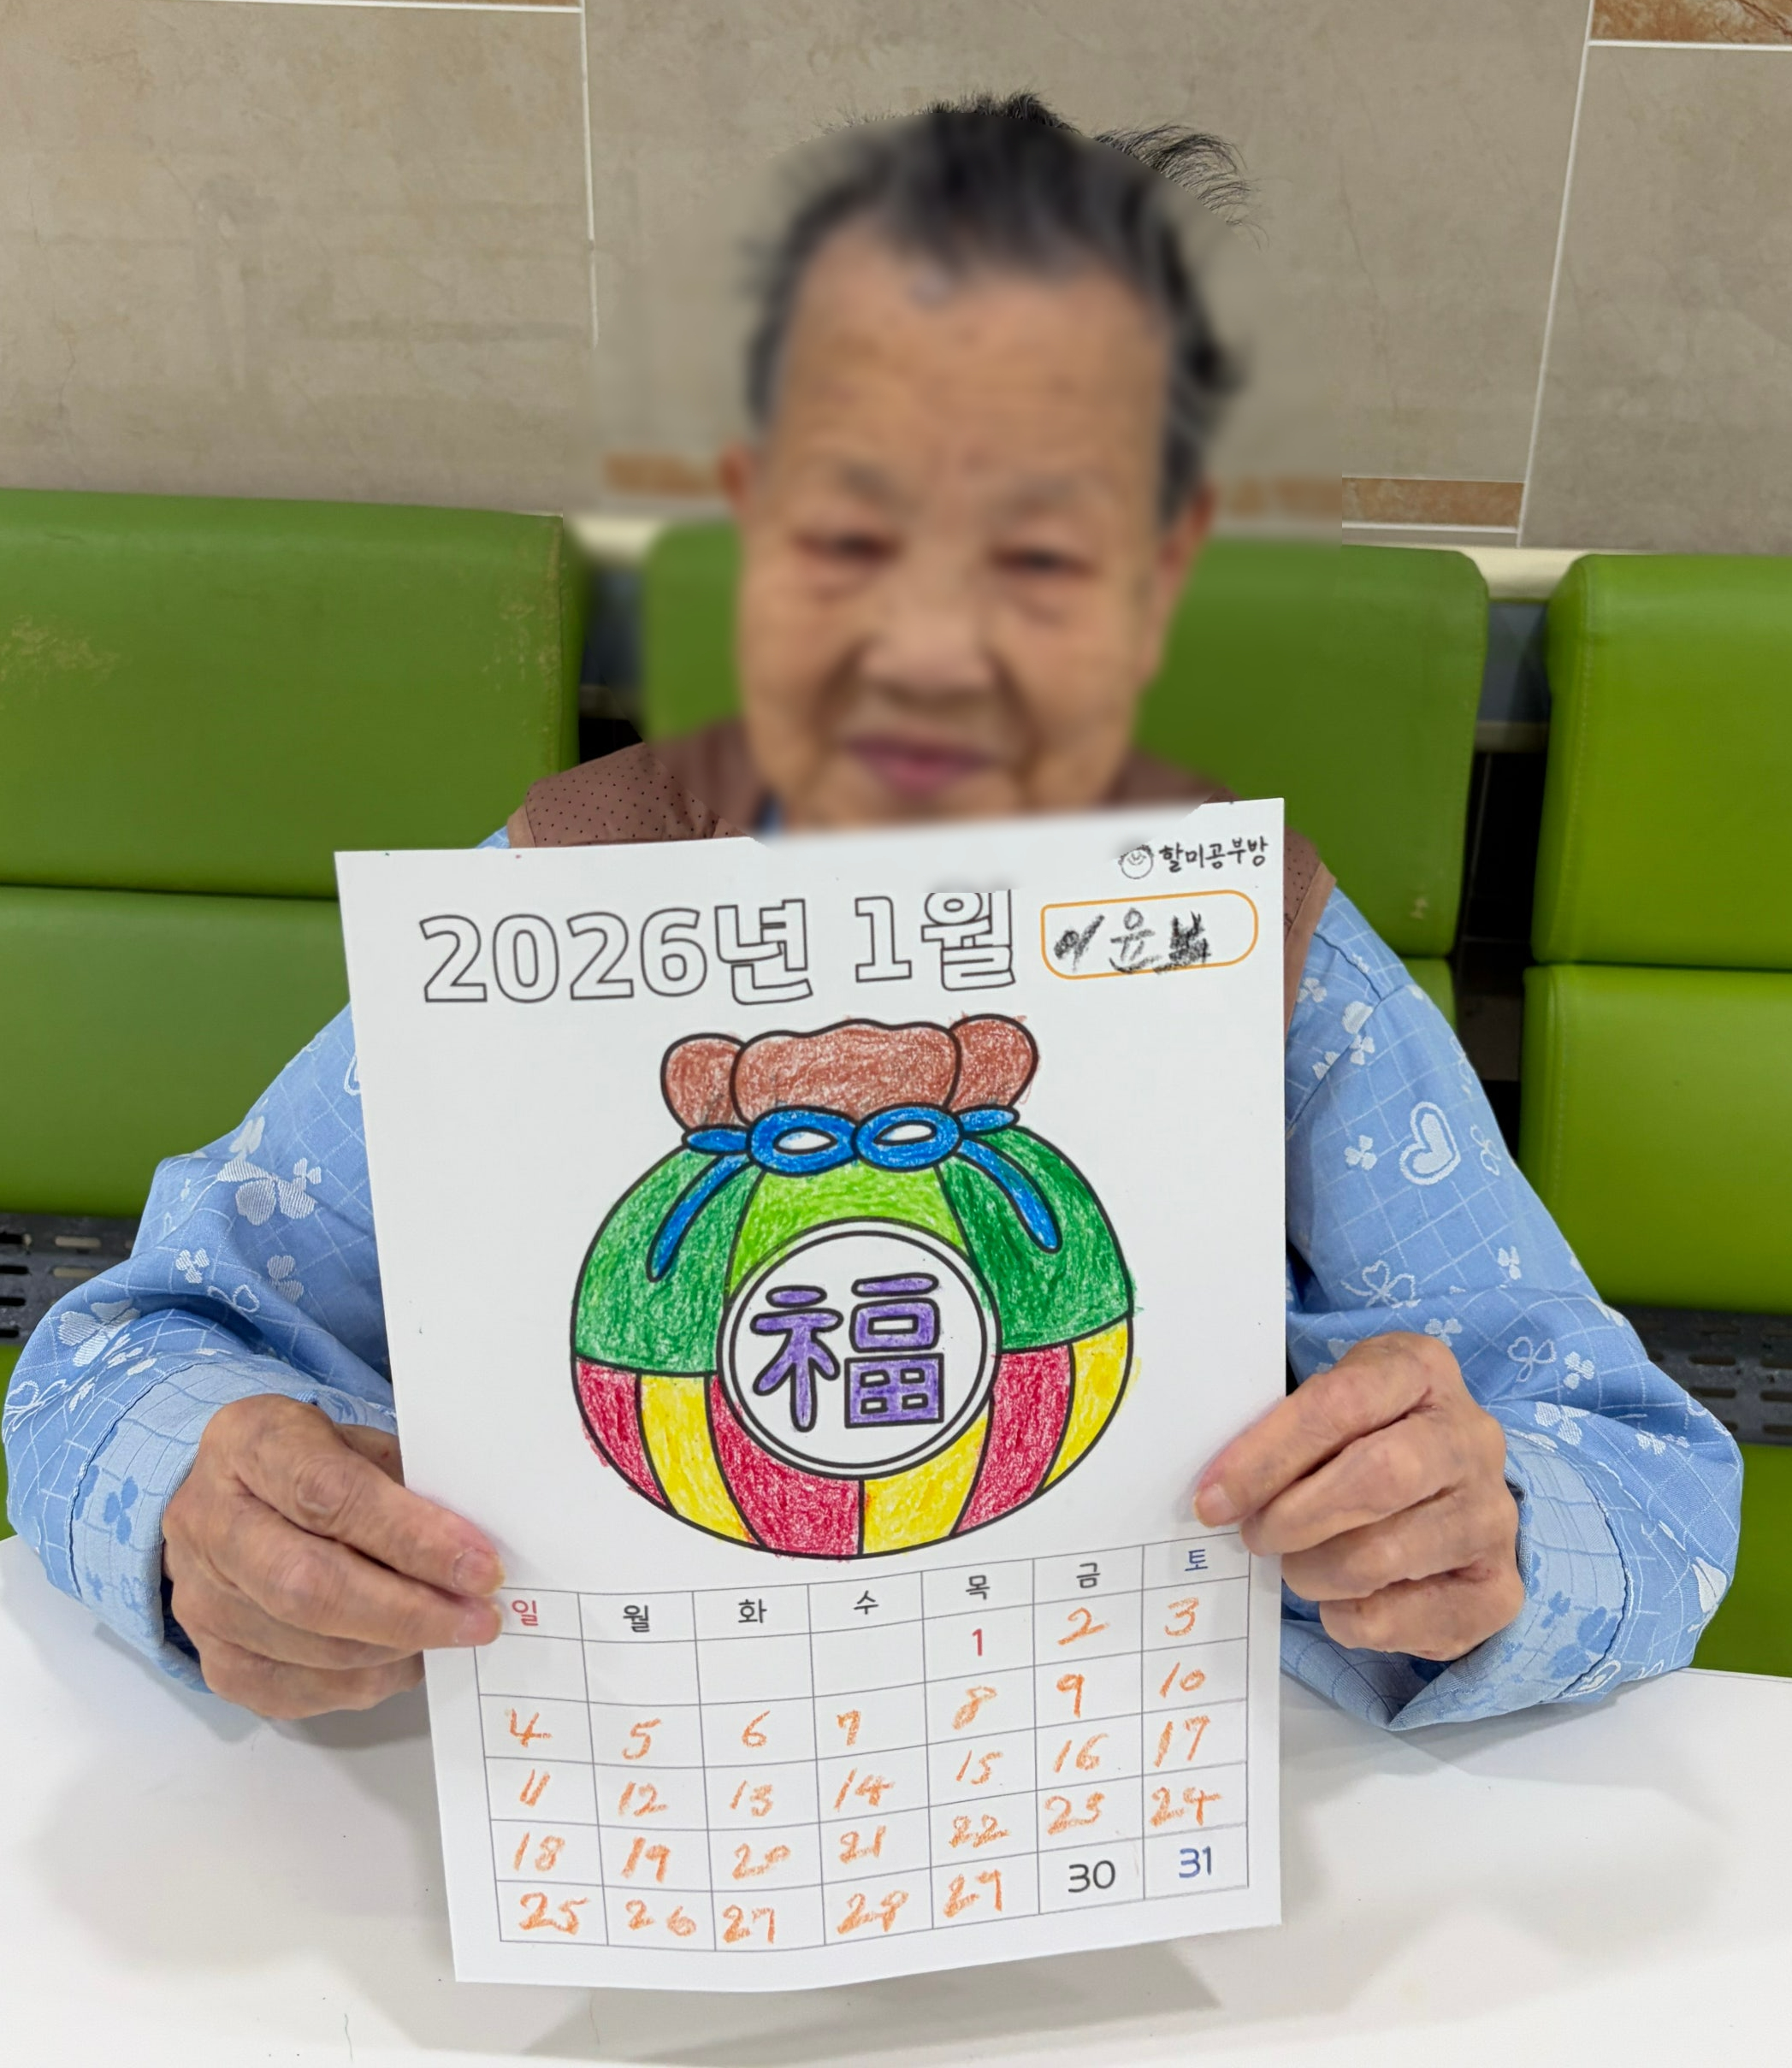 할미공부방
2026년 1월
이윤
福
일 월 화 수 목 금 토
1 2 3
4 5 6 7 8 9 10
11 12 13 14 15 16 17
18 19 20 21 22 23 24
25 26 27 28 29 30 31